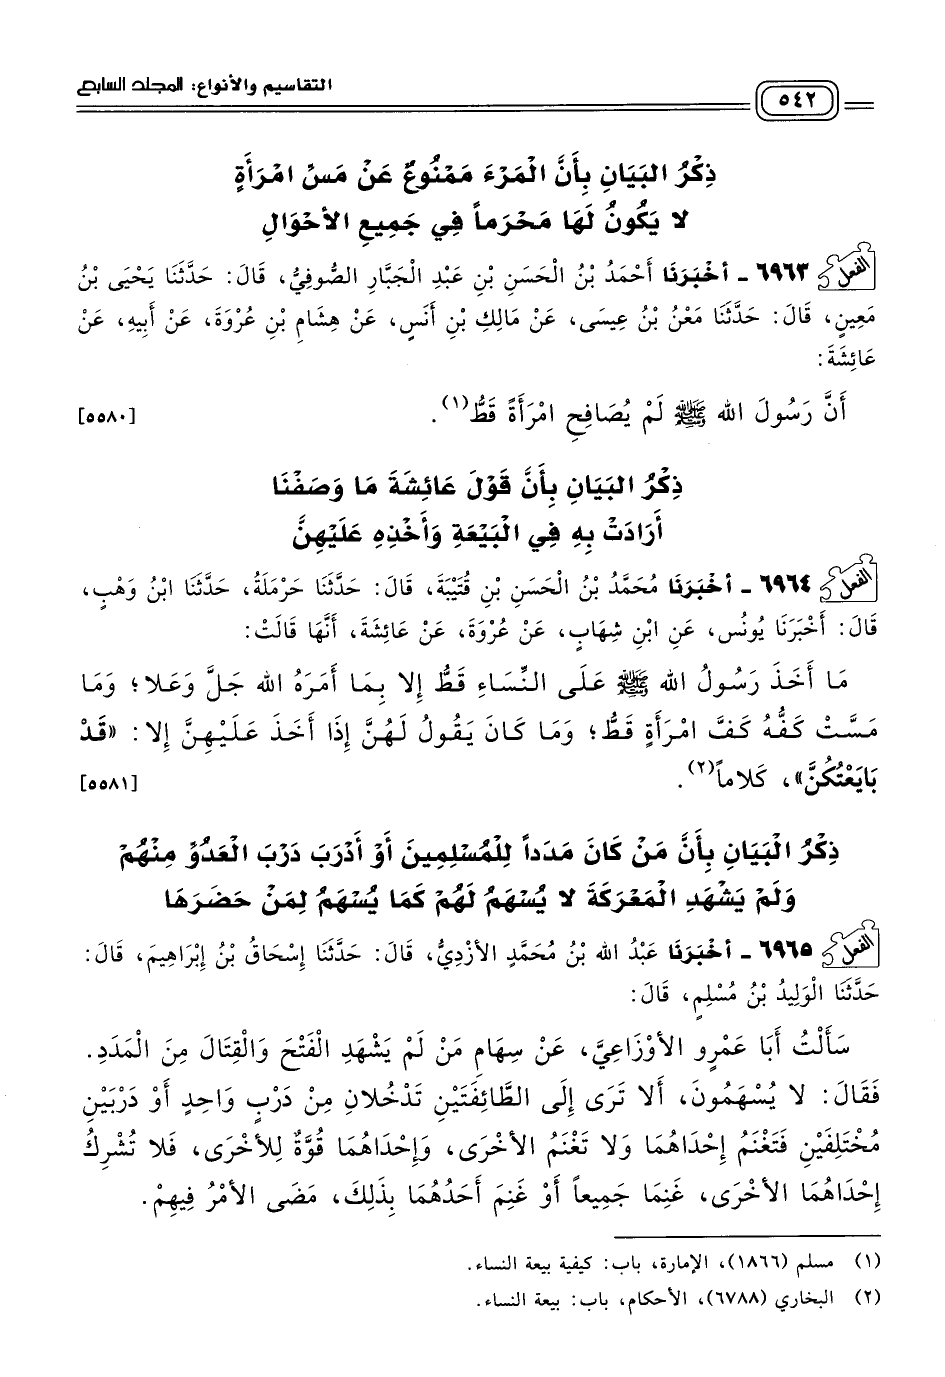 ٥٤٢ التقاسيم والأنواع: المجلد السابع
ذِكْرُ البَيَانِ بِأَنَّ الْمَرْءَ مَمْنُوعٌ عَنْ مَسِّ امْرَأَةٍ
لا يَكُونُ لَهَا مَحْرَماً فِي جَمِيعِ الأَحْوَالِ
الفعل ٦٩٦٣ - أخْبَرَنَا أَحْمَدُ بْنُ الْحَسَنِ بْنِ عَبْدِ الْجَبَّارِ الصُّوفِيُّ، قَالَ: حَدَّثَنَا يَحْيَى بْنُ
مَعِينٍ، قَالَ: حَدَّثَنَا مَعْنُ بْنُ عِيسَى، عَنْ مَالِكِ بْنِ أَنَسٍ، عَنْ هِشَامِ بْنِ عُرْوَةَ، عَنْ أَبِيهِ، عَنْ
عَائِشَةَ:
أَنَّ رَسُولَ الله ﷺ لَمْ يُصَافِحِ امْرَأَةً قَطُّ(١). [٥٥٨٠]
ذِكْرُ البَيَانِ بِأَنَّ قَوْلَ عَائِشَةَ مَا وَصَفْنَا
أَرَادَتْ بِهِ فِي الْبَيْعَةِ وَأَخْذِهِ عَلَيْهِنَّ
الفعل ٦٩٦٤ - أخْبَرَنَا مُحَمَّدُ بْنُ الْحَسَنِ بْنِ قُتَيْبَةَ، قَالَ: حَدَّثَنَا حَرْمَلَةُ، حَدَّثَنَا ابْنُ وَهْبٍ،
قَالَ: أَخْبَرَنَا يُونُس، عَنِ ابْنِ شِهَابٍ، عَنْ عُرْوَةَ، عَنْ عَائِشَةَ، أَنَّهَا قَالَتْ:
مَا أَخَذَ رَسُولُ الله ﷺ عَلَى النِّسَاءِ قَطُّ إِلا بِمَا أَمَرَهُ الله جَلَّ وَعَلا؛ وَمَا
مَسَّتْ كَفُّهُ كَفَّ امْرَأَةٍ قَطُّ؛ وَمَا كَانَ يَقُولُ لَهُنَّ إِذَا أَخَذَ عَلَيْهِنَّ إِلا: «قَدْ
بَايَعْتُكُنَّ»، كَلاماً(٢). [٥٥٨١]
ذِكْرُ الْبَيَانِ بِأَنَّ مَنْ كَانَ مَدَداً لِلْمُسْلِمِينَ أَوْ أَدْرَبَ دَرْبَ الْعَدُوِّ مِنْهُمْ
وَلَمْ يَشْهَدِ الْمَعْرَكَةَ لا يُسْهَمُ لَهُمْ كَمَا يُسْهَمُ لِمَنْ حَضَرَهَا
الفعل ٦٩٦٥ - أخْبَرَنَا عَبْدُ الله بْنُ مُحَمَّدٍ الأَزْدِيُّ، قَالَ: حَدَّثَنَا إِسْحَاقُ بْنُ إِبْرَاهِيمَ، قَالَ:
حَدَّثَنَا الْوَلِيدُ بْنُ مُسْلِمٍ، قَالَ:
سَأَلْتُ أَبَا عَمْرٍو الأَوْزَاعِيَّ، عَنْ سِهَامِ مَنْ لَمْ يَشْهَدِ الْفَتْحَ وَالْقِتَالَ مِنَ الْمَدَدِ.
فَقَالَ: لا يُسْهَمُونَ، أَلا تَرَى إِلَى الطَّائِفَتَيْنِ تَدْخُلانِ مِنْ دَرْبٍ وَاحِدٍ أَوْ دَرْبَيْنِ
مُخْتَلِفَيْنِ فَتَغْنَمُ إِحْدَاهُمَا وَلا تَغْنَمُ الأُخْرَى، وَإِحْدَاهُمَا قُوَّةٌ لِلأُخْرَى، فَلا تُشْرِكُ
إِحْدَاهُمَا الأُخْرَى، غَنِمَا جَمِيعاً أَوْ غَنِمَ أَحَدُهُمَا بِذَلِكَ، مَضَى الأَمْرُ فِيهِمْ.
(١) مسلم (١٨٦٦)، الإمارة، باب: كيفية بيعة النساء.
(٢) البخاري (٦٧٨٨)، الأحكام، باب: بيعة النساء.